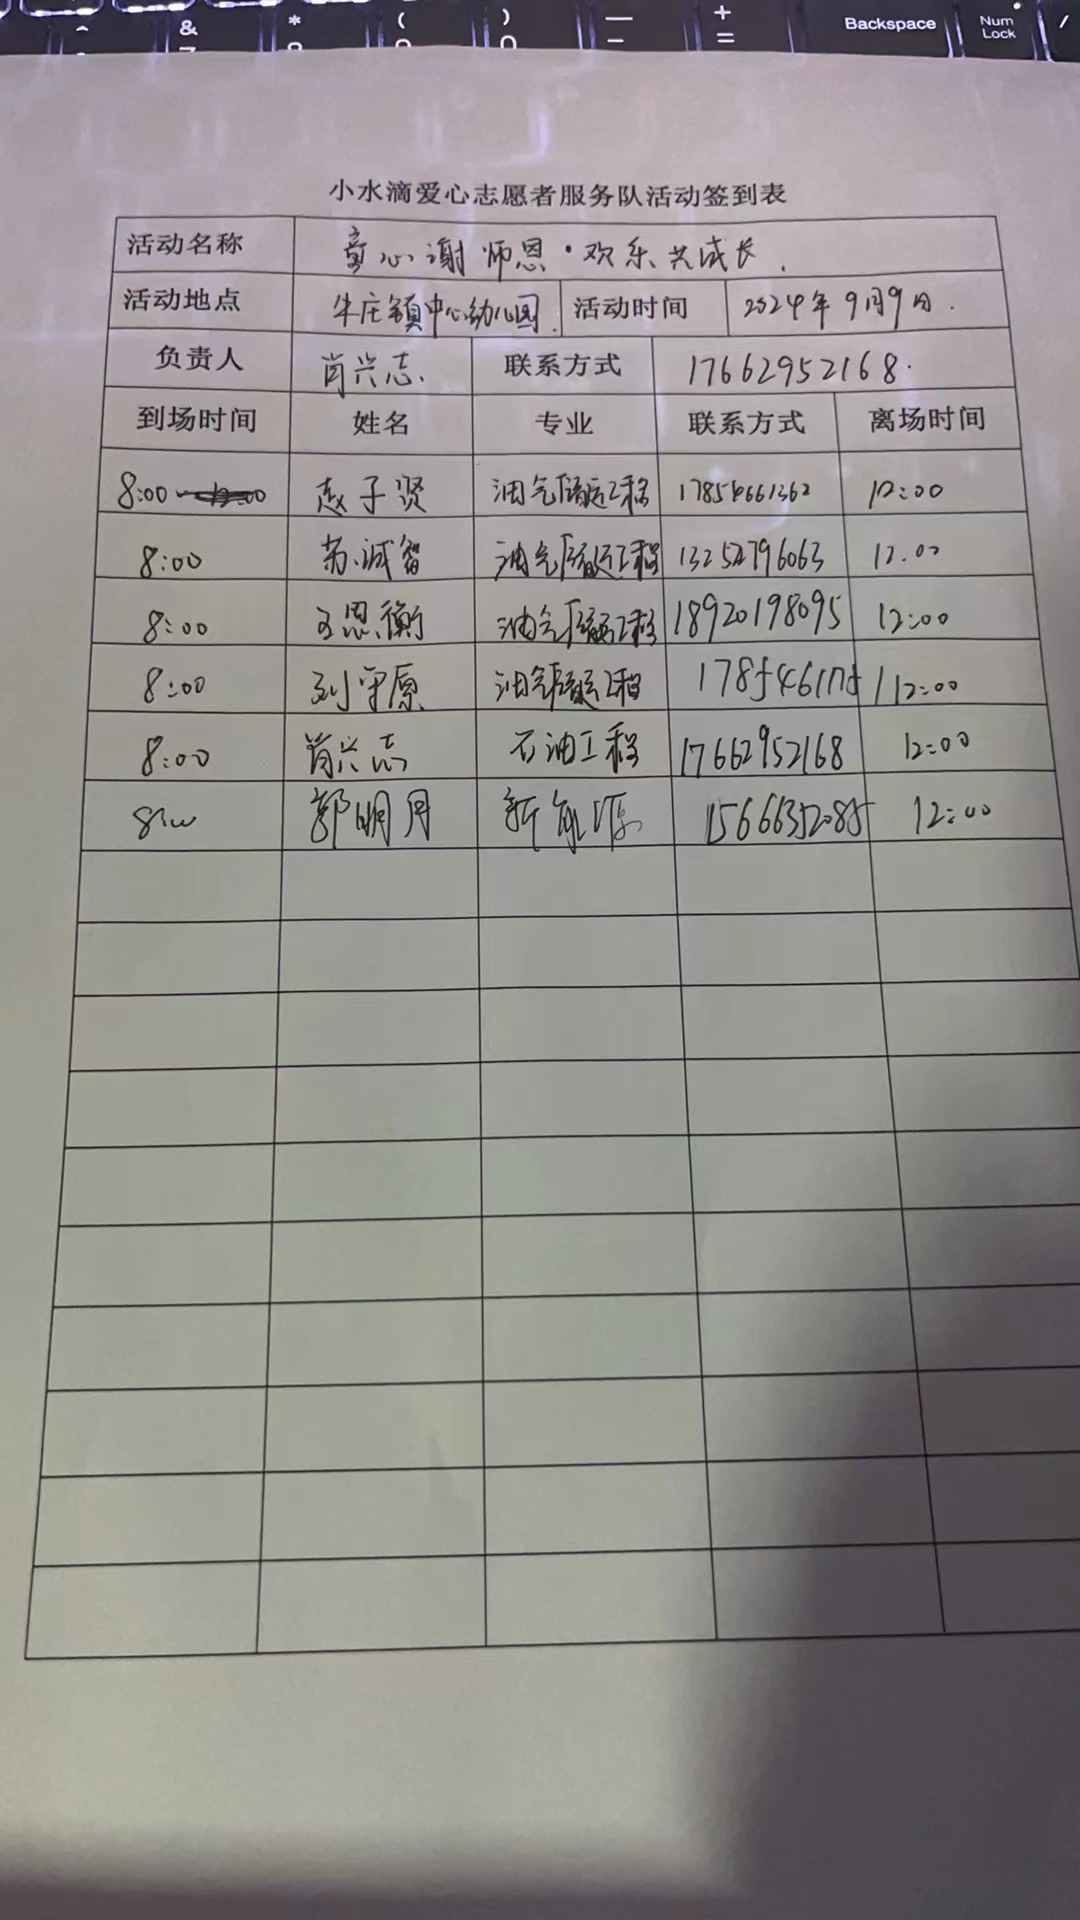 & * ( ) — + Backspace Num Lock /
^ 7 – =
小水滴爱心志愿者服务队活动签到表
活动名称 童心谢师恩·欢乐共成长.
活动地点 牛庄镇中心幼儿园. 活动时间 2024年9月9日.
负责人 肖兴志. 联系方式 17662952168.
到场时间 姓名 专业 联系方式 离场时间
8:00 赵子贤 油气储运工程 17854661362 12:00
8:00 苏诚智 油气储运工程 13252796063 12:00
8:00 王恩衡 油气储运工程 18920198095 12:00
8:00 刘守原 油气储运工程 12:00
8:00 肖兴志 石油工程 17662952168 12:00
8:00 郭明月 新能源 15666352085 12:00